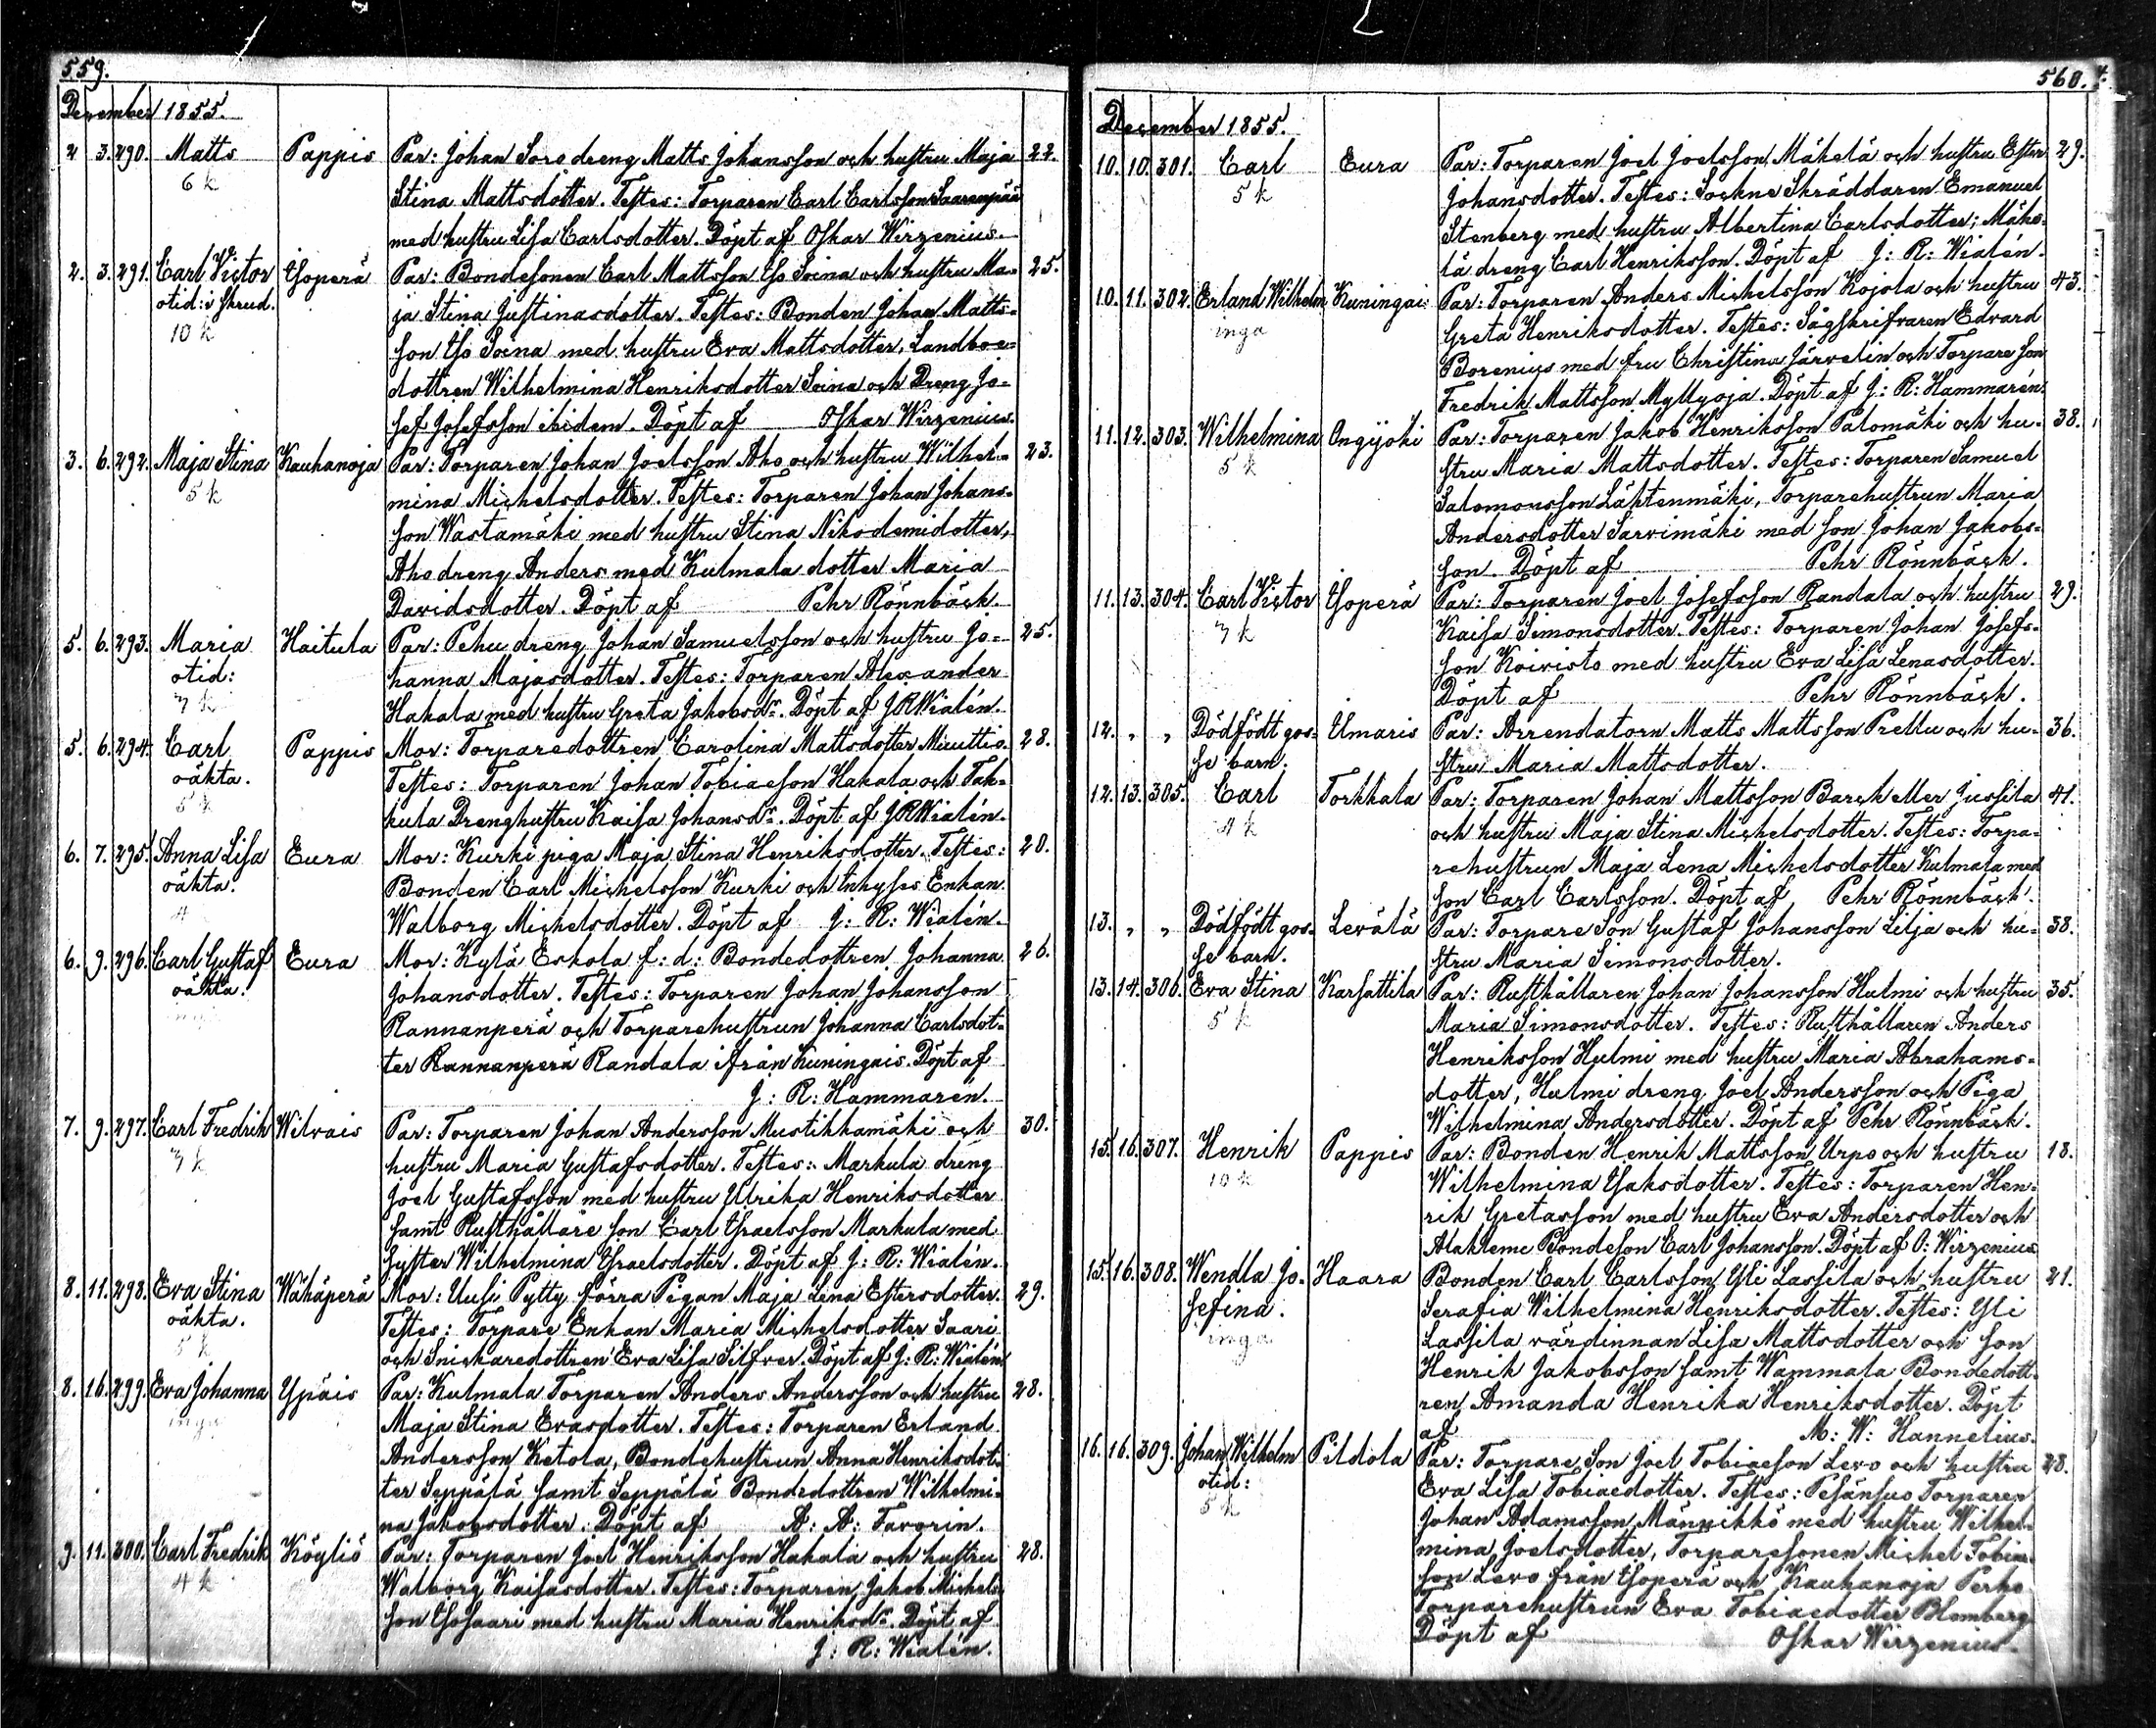 559.
December 1855.
2 3. 290. Matts Pappis Par: Johan Soro dreng Matts Johansson och hustru Maja 22.
6 k Stina Mattsdotter. Testes: Torparen Carl Carlsson Saarenpää
med hustru Lisa Carlsdotter. Döpt af Oskar Wirzenius.
2. 3. 291. Carl Victor Isoperä Par: Bondesonen Carl Mattsson Iso Soina och hustru Ma- 25.
otid: i skrud. ja Stina Justinasdotter. Testes: Bonden Johan Matts-
10 k son Iso Soina med hustru Eva Mattsdotter, Landboe-
dottren Wilhelmina Henriksdotter Soina och Dreng Jo-
sef Josefsson ibidem. Döpt af Oskar Wirzenius.
3. 6. 292. Maja Stina Kauhanoja Par: Torparen Johan Joelsson Aho och hustru Wilhel- 23.
5 k mina Michelsdotter. Testes: Torparen Johan Johans-
son Wastamäki med hustru Stina Nikodemidotter,
Aho dreng Anders med Kulmala dotter Maria
Davidsdotter. Döpt af Pehr Rönnbäck.
5. 6. 293. Maria Haitula Par: Pehu dreng Johan Samuelsson och hustru Jo- 25.
otid: hanna Majasdotter. Testes: Torparen Alexander
7 k Hakala med hustru Greta Jakobsdr. Döpt af J R Wialén.
5. 6. 294. Carl Pappis Mor: Torparedottren Carolina Mattsdotter Minuttio. 28.
oäkta. Testes: Torparen Johan Tobiaesson Hakala och Tak-
5 k kula Drenghustru Kaisa Johansdr. Döpt af J R Wialén.
6. 7. 295. Anna Lisa Eura Mor: Kurki piga Maja Stina Henriksdotter. Testes: 20.
oäkta. Bonden Carl Michelsson Kurki och Inhyses Enkan
4 Walborg Michelsdotter. Döpt af J: R: Wialén.
6. 9. 296. Carl Gustaf Eura Mor: Kylä Eskola f: d: Bondedottren Johanna 26.
oäkta. Johansdotter. Testes: Torparen Johan Johansson
Rannanperä och Torparehustrun Johanna Carlsdot-
ter Rannanperä Randala ifrån Kuningais. Döpt af
J: R: Hammarén.
7. 9. 297. Carl Fredrik Wilvais Par: Torparen Johan Andersson Mustikkamäki och 30.
7 k hustru Maria Gustafsdotter. Testes: Markula dreng
Joel Gustafsson med hustru Ulrika Henriksdotter
samt Rusthållare son Carl Israelsson Markula med
syster Wilhelmina Israelsdotter. Döpt af J: R: Wialén.
8. 11. 298. Eva Stina Wähäperä Mor: Uusi Pytty förra Pigan Maja Lena Estersdotter. 29.
oäkta. Testes: Torpare Enkan Maria Michelsdotter Saari
5 k och Snickaredottren Eva Lisa Silfver. Döpt af J: R: Wialén.
8. 16. 299. Eva Johanna Ypäis Par: Kulmala Torparen Anders Andersson och hustru 28.
inga Maja Stina Evasdotter. Testes: Torparen Erland
Andersson Ketola, Bondehustrun Anna Henriksdot-
ter Seppälä samt Seppälä Bondedottren Wilhelmi-
na Jakobsdotter. Döpt af A: A: Favorin.
9. 11. 300. Carl Fredrik Köyliö Par: Torparen Joel Henriksson Hakala och hustru 28.
4 k Walborg Kaisasdotter. Testes: Torparen Jakob Michels-
son Isosaari med hustru Maria Henriksdr. Döpt af
J: R: Wialén.
560.
December 1855.
10. 10. 301. Carl Eura Par: Torparen Joel Joelsson Mäkelä och hustru Ester 29.
5 k Johansdotter. Testes: Sockne Skräddaren Emanuel
Stenberg med hustru Albertina Carlsdotter; Mäke-
lä dreng Carl Henriksson. Döpt af J: R: Wialén.
10. 11. 302. Erland Wilhelm Kuningais Par: Torparen Anders Michelsson Kojola och hustru 43.
inga Greta Henriksdotter. Testes: Sågskrifvaren Edvard
Borenius med fru Christina Järvelin och Torpare son
Fredrik Mattsson Myllyoja. Döpt af J: R: Hammarén.
11. 12. 303. Wilhelmina Ongijoki Par: Torparen Jakob Henriksson Palomäki och hu- 38.
5 k stru Maria Mattsdotter. Testes: Torparen Samuel
Salomonsson Lähtenmäki, Torparehustrun Maria
Andersdotter Sarvimäki med son Johan Jakobs-
son. Döpt af Pehr Rönnbäck.
11. 13. 304. Carl Victor Isoperä Par: Torparen Joel Josefsson Randala och hustru 29.
7 k Kaisa Simonsdotter. Testes: Torparen Johan Josefs-
son Koivisto med hustru Eva Lisa Lenasdotter.
Döpt af Pehr Rönnbäck.
12. " " Dödfödt gos- Umaris Par: Arrendatorn Matts Mattsson Prellu och hu- 36.
se barn. stru Maria Mattsdotter.
12. 13. 305. Carl Torkkala Par: Torparen Johan Mattsson Barck eller Jussila 41.
4 k och hustru Maja Stina Michelsdotter. Testes: Torpa-
rehustrun Maja Lena Michelsdotter Kulmala med
son Carl Carlsson. Döpt af Pehr Rönnbäck.
13. " " Dödfödt gos- Levälä Par: Torpare Son Gustaf Johansson Lilja och hu- 38.
se barn. stru Maria Simonsdotter.
13. 14. 306. Eva Stina Karsattila Par: Rusthållaren Johan Johansson Hulmi och hustru 35.
5 k Maria Simonsdotter. Testes: Rusthållaren Anders
Henriksson Hulmi med hustru Maria Abrahams-
dotter, Hulmi dreng Joel Andersson och Piga
Wilhelmina Andersdotter. Döpt af Pehr Rönnbäck.
15. 16. 307. Henrik Pappis Par: Bonden Henrik Mattsson Urpo och hustru 18.
10 k Wilhelmina Isaksdotter. Testes: Torparen Hen-
rik Gretasson med hustru Eva Andersdotter och
Alakleme Bondeson Carl Johansson. Döpt af O: Wirzenius.
15. 16. 308. Wendla Jo- Haara Bonden Carl Carlsson Yli Lassila och hustru 21.
sefina. Serafia Wilhelmina Henriksdotter. Testes: Yli
inga Lassila värdinnan Lisa Mattsdotter och son
Henrik Jakobsson samt Wammala Bondedott-
ren Amanda Henrika Henriksdotter. Döpt
af M: W: Hannelius.
16. 16. 309. Johan Wilhelm Pildola Par: Torpare Son Joel Tobiaesson Levo och hustru 28.
otid: Eva Lisa Tobiaedotter. Testes: Pesänsuo Torparen
5 k Johan Adamsson Männikkö med hustru Wilhel-
mina Joelsdotter, Torparesonen Michel Tobiae-
son Levo från Isoperä och Kauhanoja Perho
Torparehustrun Eva Tobiaedotter Blomberg
Döpt af Oskar Wirzenius.